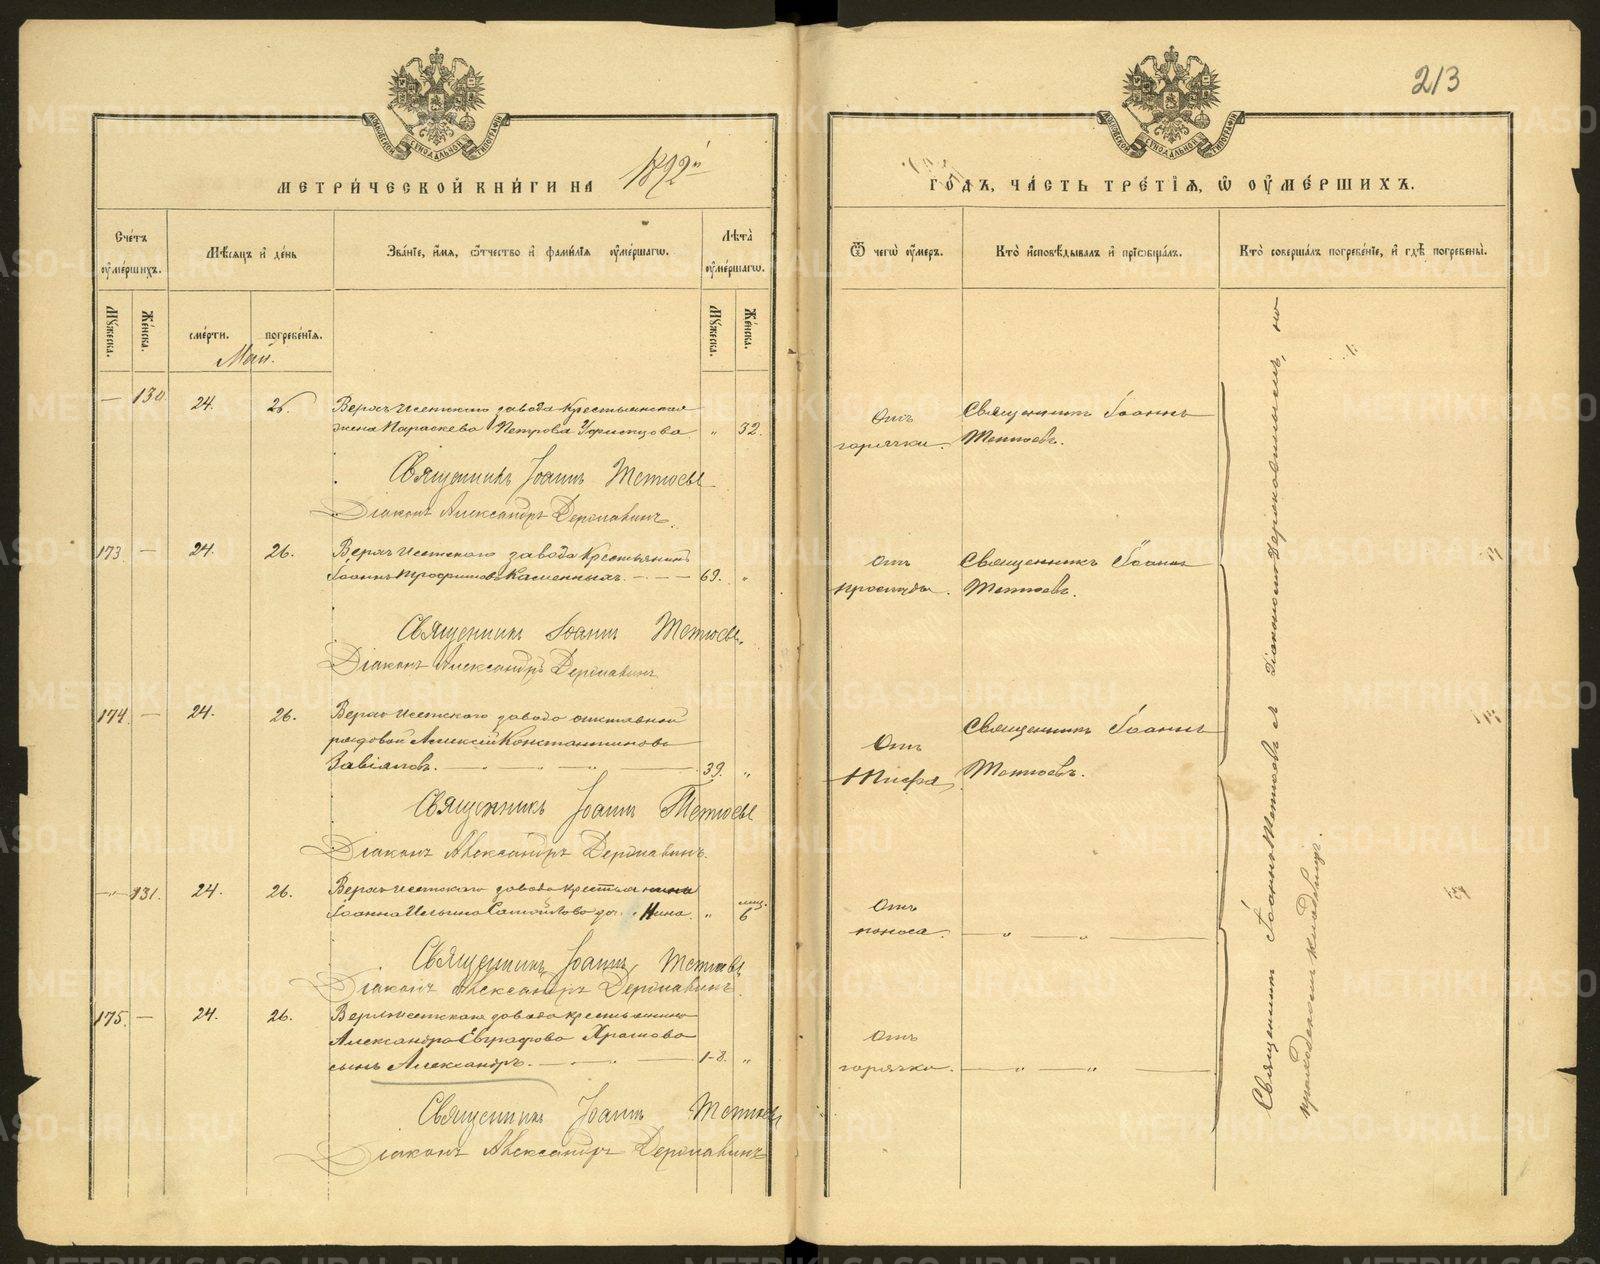 213
МЕТРИЧЕСКОЙ КНИГИ НА 1892й
ГОДЪ, ЧАСТЬ ТРЕТІЯ, Ѿ ОУМЕРШИХЪ.
Счетъ оумершихъ.
Мѣсяцъ и день
Званіе, имя, отчество и фамилія оумершагѡ.
Лѣта оумершагѡ.
Ѿ чегѡ оумеръ.
Кто исповѣдывалъ и пріѡбщалъ.
Кто совершалъ погребеніе, и гдѣ погребены.
Мужеска.
Женска.
смерти.
погребенія.
Мужеска.
Женска.
Май.
— 130 24. 26. Верхъ Исетскаго завода крестьянская
жена Параскева Петрова " 32.
Отъ
горячки.
Священникъ Іоаннъ
Тетюевъ.
Священникъ Іоаннъ Тетюевъ
Діаконъ Александръ Державинъ.
173 — 24. 26. Верхъ Исетскаго завода крестьянинъ
Іоаннъ Трофимовъ Каменныхъ. — 69. "
Отъ
простуды.
Священникъ Іоаннъ
Тетюевъ.
Священникъ Іоаннъ Тетюевъ.
Діаконъ Александръ Державинъ
174 — 24. 26. Верхъ Исетскаго завода отставной
рядовой Алексій Константиновъ
Завіяловъ. — " — " — 39. "
Отъ
тифа
Священникъ Іоаннъ
Тетюевъ.
Священникъ Іоаннъ Тетюевъ
Діаконъ Александръ Державинъ.
" 131. 24. 26. Верхъ Исетскаго завода крестьянина
Іоанна Ильина Самойлова дочь Нина. " мѣс. 6
Отъ
поноса.
— " — " —
Священникъ Іоаннъ Тетюевъ
Діаконъ Александръ Державинъ
175. — 24. 26. Верхъ Исетскаго завода крестьянина
Александра Евграфова Храмова
сынъ Александръ. — " — 1-8. "
Отъ
горячки.
— " — " —
Священникъ Іоаннъ Тетюевъ
Діаконъ Александръ Державинъ
Священникъ Іоаннъ Тетюевъ съ діакономъ Державинымъ, на
приходскомъ кладбищѣ.
METRIKI.GASO-URAL.RU